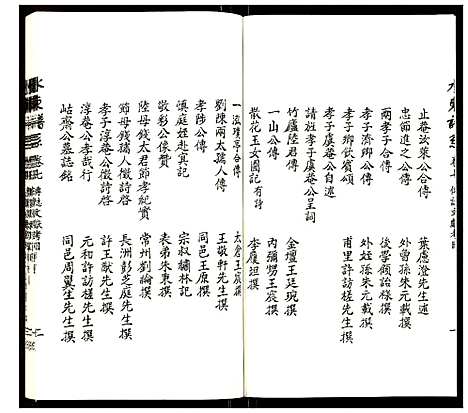 止菴汝葉公合傳 葉慮澄先生述
忠節進之公傳 外曾孫朱元載撰
兩孝子合傳 後學顧詒祿撰
孝子濟卿公傳 外姪孫朱元載撰
孝子鄉飲賓頌 甫里許訪槎先生撰
孝子虞菴公自述
請旌孝子虞菴公呈詞
竹廬陸君傳 金壇王廷琬撰
一山公傳 丙彌甥王宸撰
散花玉女圖記有詩 李度垣撰
一流璞亭合傳 太倉王宸撰
劉陳兩太孺人傳 王敬軒先生撰
孝陟公傳 同邑王原撰
慎庭姪赴冥記 宗叔繡林記
敬彩公像贊 表弟朱東撰
陸母錢太君節孝紀實 常州劉綸撰
節母錢孺人徵詩啓 長洲彭芝庭先生撰
孝子淳菴公徵詩啓 同邑王猷先生撰
淳菴公孝哉行 元和許訪槎先生撰
岵齋公墓誌銘 同邑周巽生先生撰